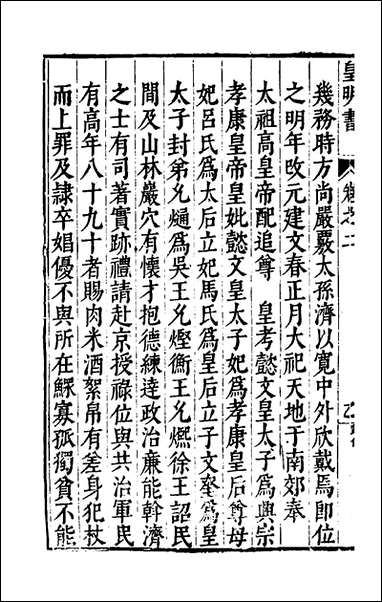 皇明書 卷之二
幾務時方尚嚴覈太孫濟以寬中外欣戴焉即位
之明年改元建文春正月大祀天地于南郊奉
太祖高皇帝配追尊 皇考懿文皇太子爲興宗
孝康皇帝皇妣懿文皇太子妃爲孝康皇后尊母
妃呂氏爲太后立妃馬氏爲皇后立子文奎爲皇
太子封弟允熥爲吳王允熞衡王允㷩徐王詔民
間及山林巖穴有懷才抱德練達政治廉能幹濟
之士有司著實跡禮請赴京授祿位與共治軍民
有高年八十九十者賜肉米酒絮帛有差身犯杖
而上罪及隷卒娼優不與所在鰥寡孤獨貧不能